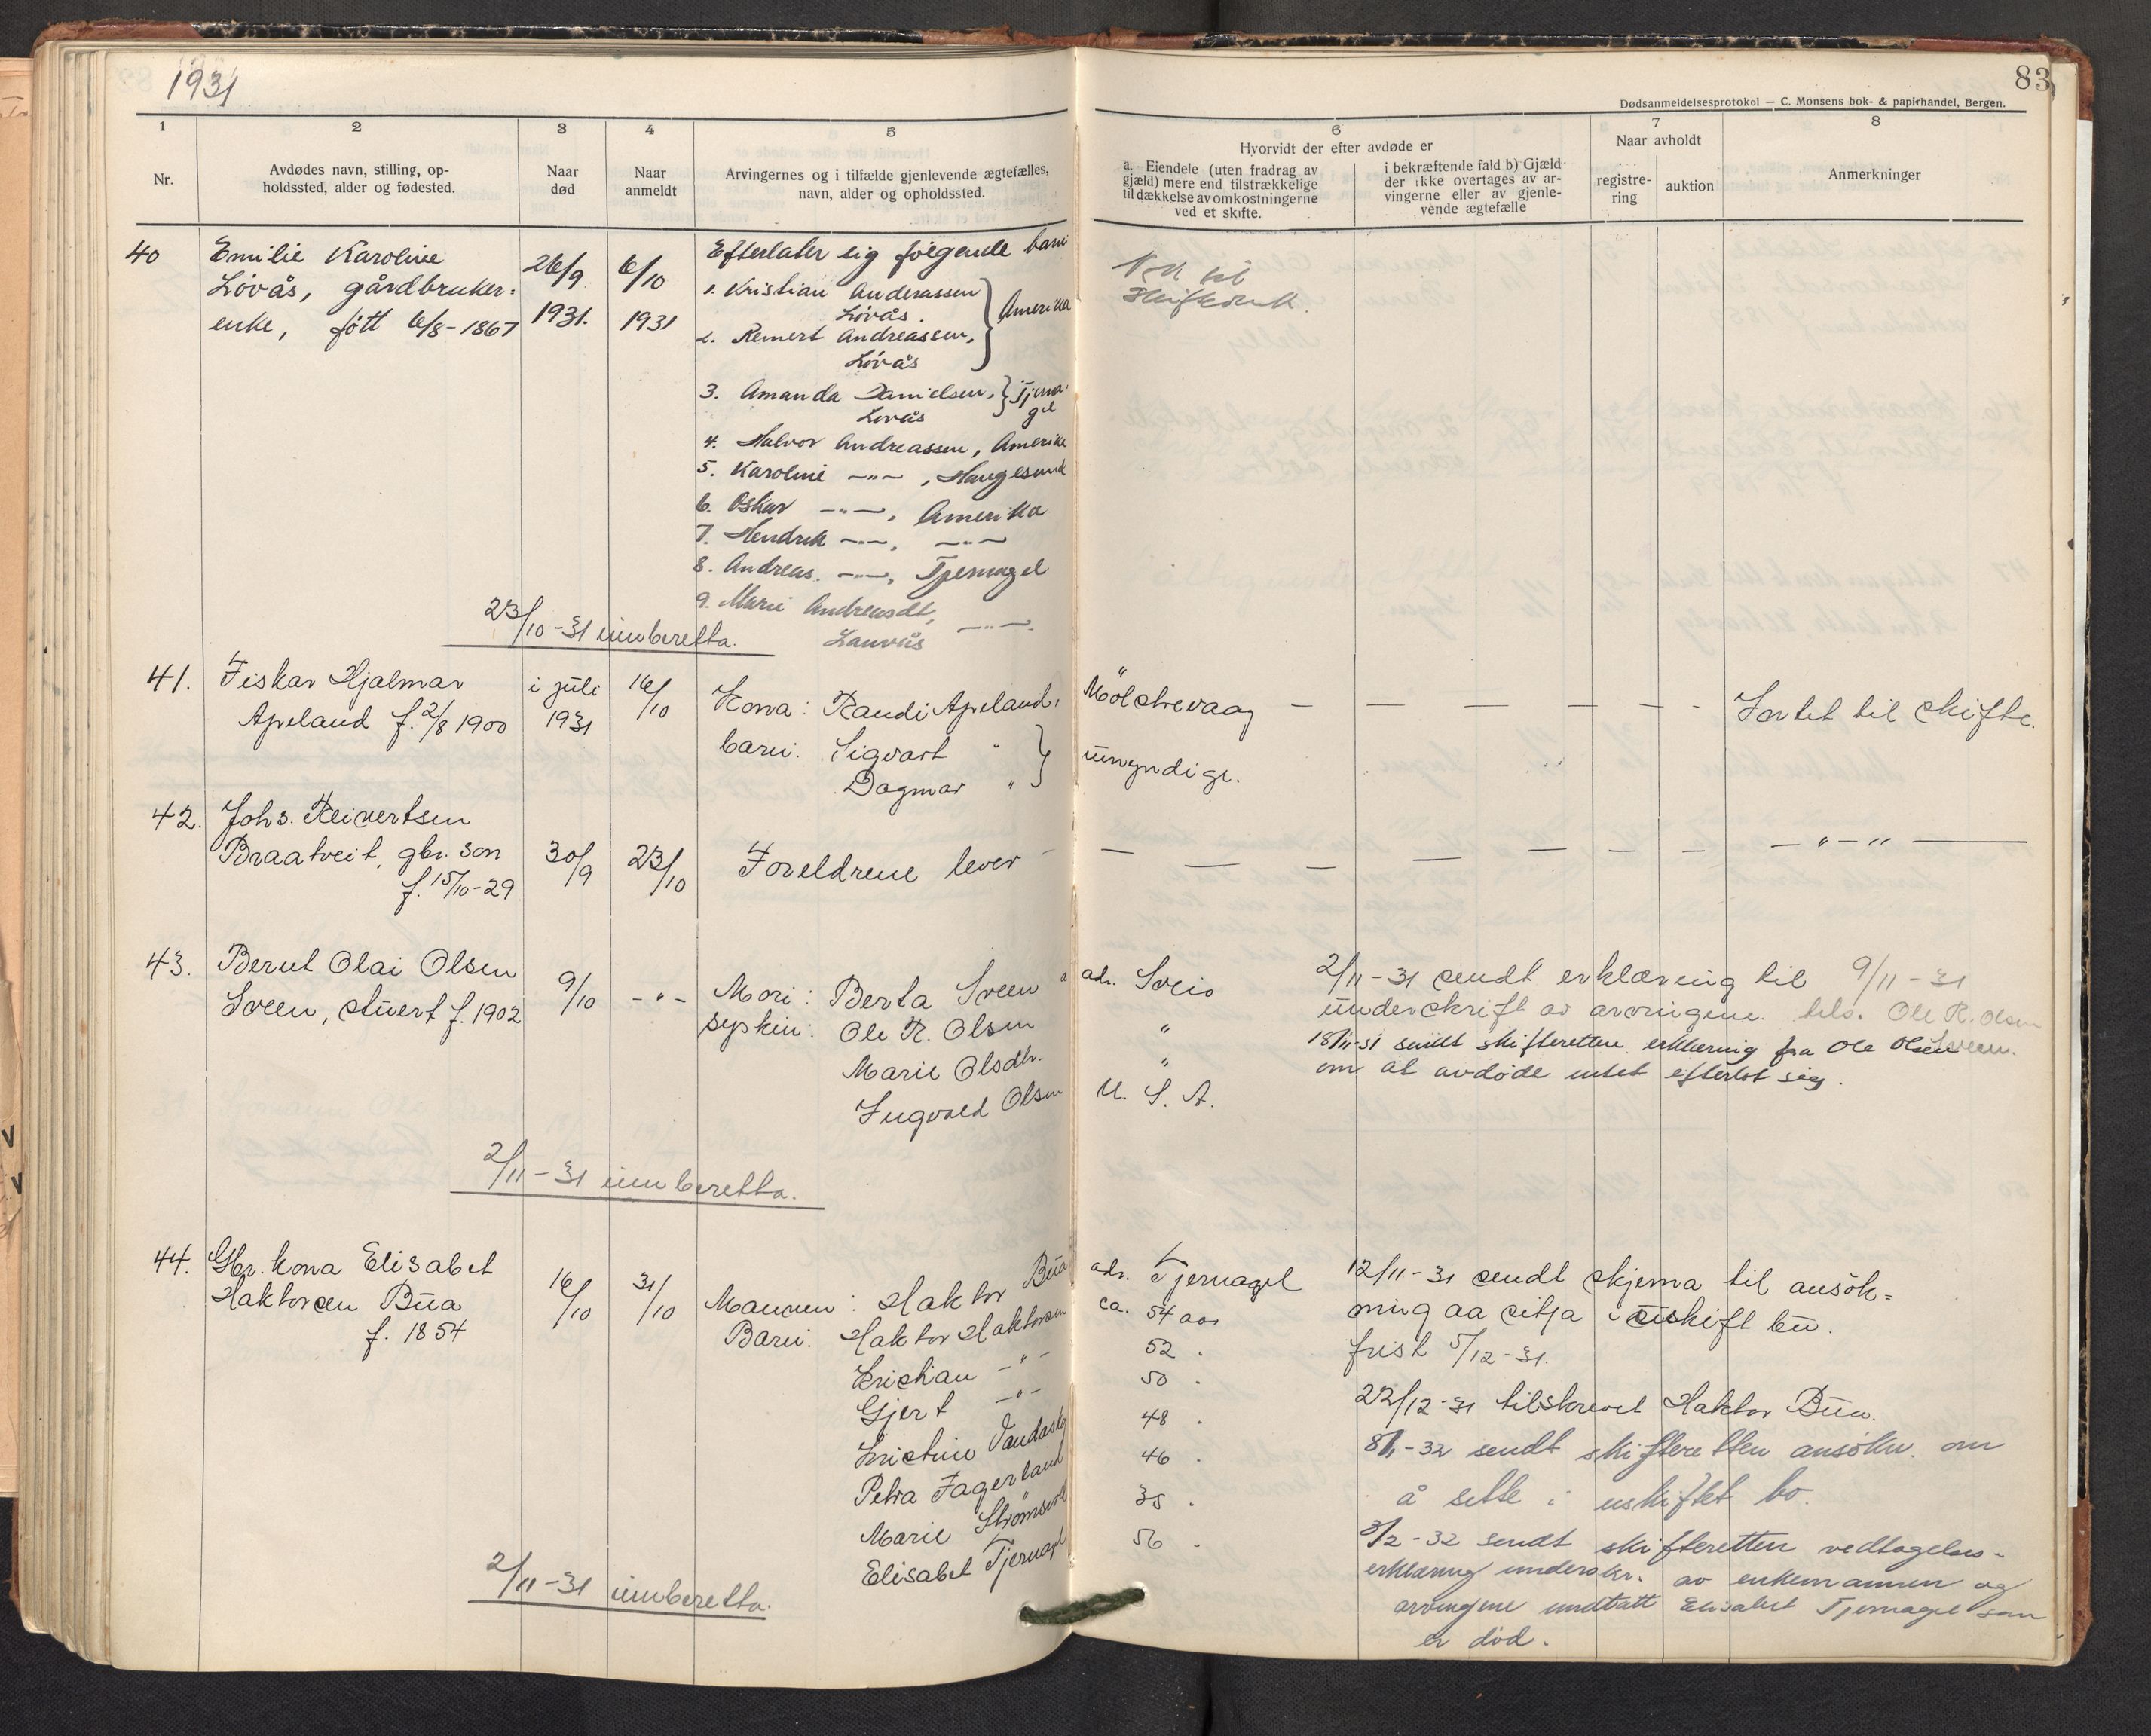 1931
83
Dødsanmeldelsesprotokol — C. Monsens bok- & papirhandel, Bergen.
1
2
3
4
5
6
7
8
Nr.
Avdødes navn, stilling, op-
holdssted, alder og fødested.
Naar
død
Naar
anmeldt
Arvingernes og i tilfælde gjenlevende ægtefælles,
navn, alder og opholdssted.
Hvorvidt der efter avdøde er
a. Eiendele (uten fradrag av
gjæld) mere end tilstrækkelige
til dækkelse av omkostningerne
ved et skifte.
i bekræftende fald b) Gjæld
der ikke overtages av ar-
vingerne eller av gjenle-
vende ægtefælle
Naar avholdt
registre-
ring
auktion
Anmerkninger
40
Emilie Karoline
Lövås, gårdbruker=
enke, født 6/8-1867
26/9
1931.
6/10
1931
Efterlater sig følgende barn
1. Kristian Andreassen
Lövås.
2. Reinert Andreassen,
Lövås
} Amerika
3. Amanda Danielsen,
Lovås
} Tjerna-
gel
4. Halvor Andreassen, Amerika
5. Karoline —"— , Haugesund
6. Oskar —"—, Amerika
7. Hendrik —"—, —"—
8. Andreas. —"—, Tjernagel
9. Marie Andreasdt,
Lauvås —"—.
til
23/10-31 innberetta.
41.
Fiskar Hjalmar
Apeland f. 2/8 1900
i juli
1931
16/10
Kona: Randi Apeland,
barn: Sigvart "
Dagmar " }
Mölstrevaag — — — — — -
umyndige.
Intet til skifte.
42.
Johs. Reinertsen
Braatveit, gbr. son
f. 15/10-29
30/9
23/10
Foreldrene lever — — — — — — — —
— " — " —
43.
Bernt Olai Olsen
Sveen, stuert f. 1902
9/10
- " -
Mori: Berta Sveen
syskin: Ole R. Olsen
Marie Olsdtr.
Ingvald Olsen
adr. Sveio
"
"
U. S. A.
2/11-31 sendt erklæring til
underskrift av arvingene.
9/11-31
tels. Ole R. Olsen
Sveen.
18/11-31 sendt skifteretten erklæring fra Ole Olsen
om at avdøde intet efterlot sig.
2/11-31 innberetta.
44.
Gbr. kona Elisabet
Haktorsen Bua
f. 1854
16/10
31/10
Mannen: Haktor Bua
Barn: Haktor Haktorsen
Kristian — " —
Gjert — " —
Kristine Vandaskog
Petra Fagerland
Marie
Elisabet Tjernagel
adr. Tjernagel
ca. 54 aar
52 "
50 "
48 "
46 "
35 "
56 "
12/11-31 sendt skjema til ansök=
ning aa sitja i uskift bu.
frist 5/12-31.
22/12-31 tilskrevet Haktor Bua.
8/1-32 sendt skifteretten ansøkn. om
å sitte i uskiftet bo.
3/2-32 sendt skifteretten vedtagelses-
erklæring underskr. av enkemannen og
arvingene undtatt Elisabet Tjernagel som
er död.
2/11-31 innberetta.